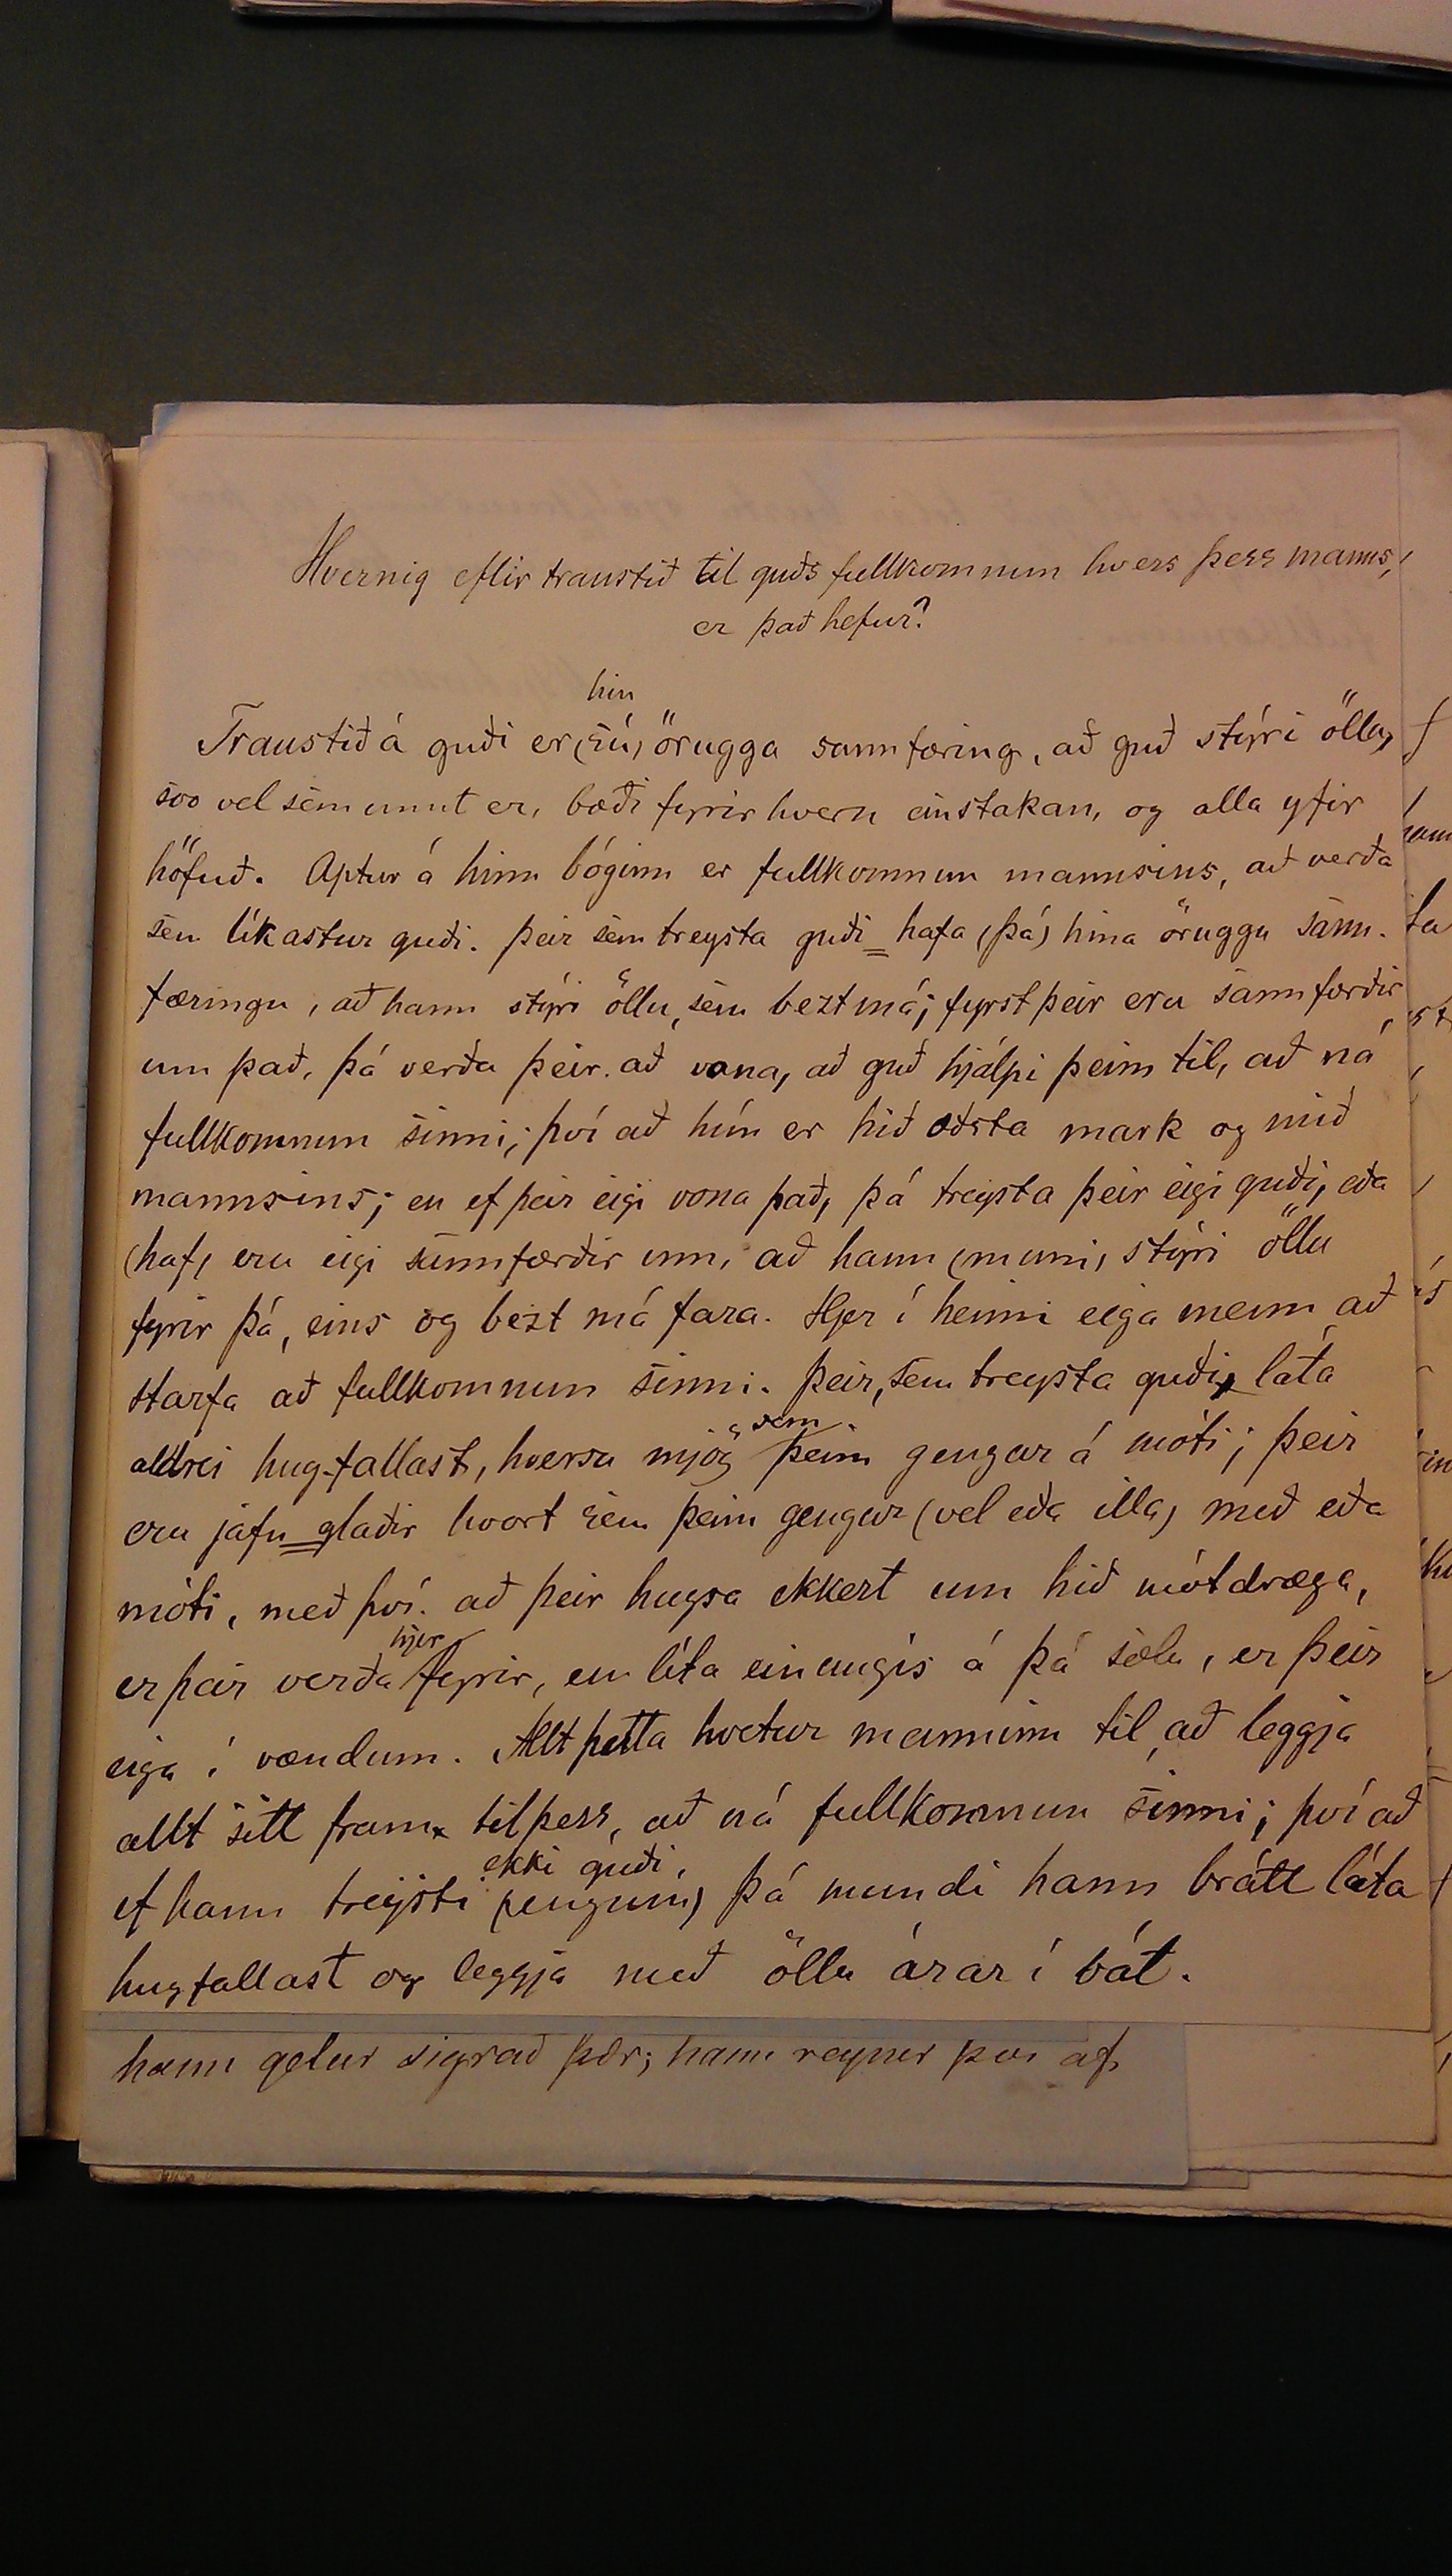 Hvernig eflir traustið til guðs fullkomnun hvers þess manns,
er það hefur?
hin
Traustið á guði er (sú) örugga sannfæring, að guð stýri öllu,
svo vel sem unnt er, bæði fyrir hvern einstakan, og alla yfir
höfuð. Aptur á hinn bóginn er fullkomnun mannsins, að verða
sem líkastur guði. Þeir sem treysta guði = hafa (þá) hina öruggu sann-
færingu, að hann stýri öllu, sem bezt má; fyrst þeir eru sannfærðir
um það, þá verða þeir að vona, að guð hjálpi þeim til, að ná
fullkomnun sinni; því að hún er hið æðsta mark og mið
mannsins; en ef þeir eigi vona það, þá treysta þeir eigi guði, eða
(haf) eru eigi sannfærðir um, að hann (muni) stýri öllu
fyrir þá, eins og bezt má fara. Hjer í heimi eiga menn að
starfa að fullkomnun sinni. Þeir, sem treysta guði, láta
aldrei hugfallast, hversu mjög sem þeim gengur á móti; þeir
eru jafn=glaðir hvort sem þeim gengur (vel eða illa) með eða
móti, með því að þeir hugsa ekkert um hið mótdræga,
er þeir verða hjer fyrir, en líta einungis á þá sælu, er þeir
eiga í vændum. Allt þetta hvetur manninn til að leggja
allt sitt fram til þess, að ná fullkomnun sinni; því að
ekki guði,
ef hann treysti (engum) þá mundi hann brátt láta
hugfallast og leggja með öllu árar í bát.
hann getur sigrað þær; hann reynir því af